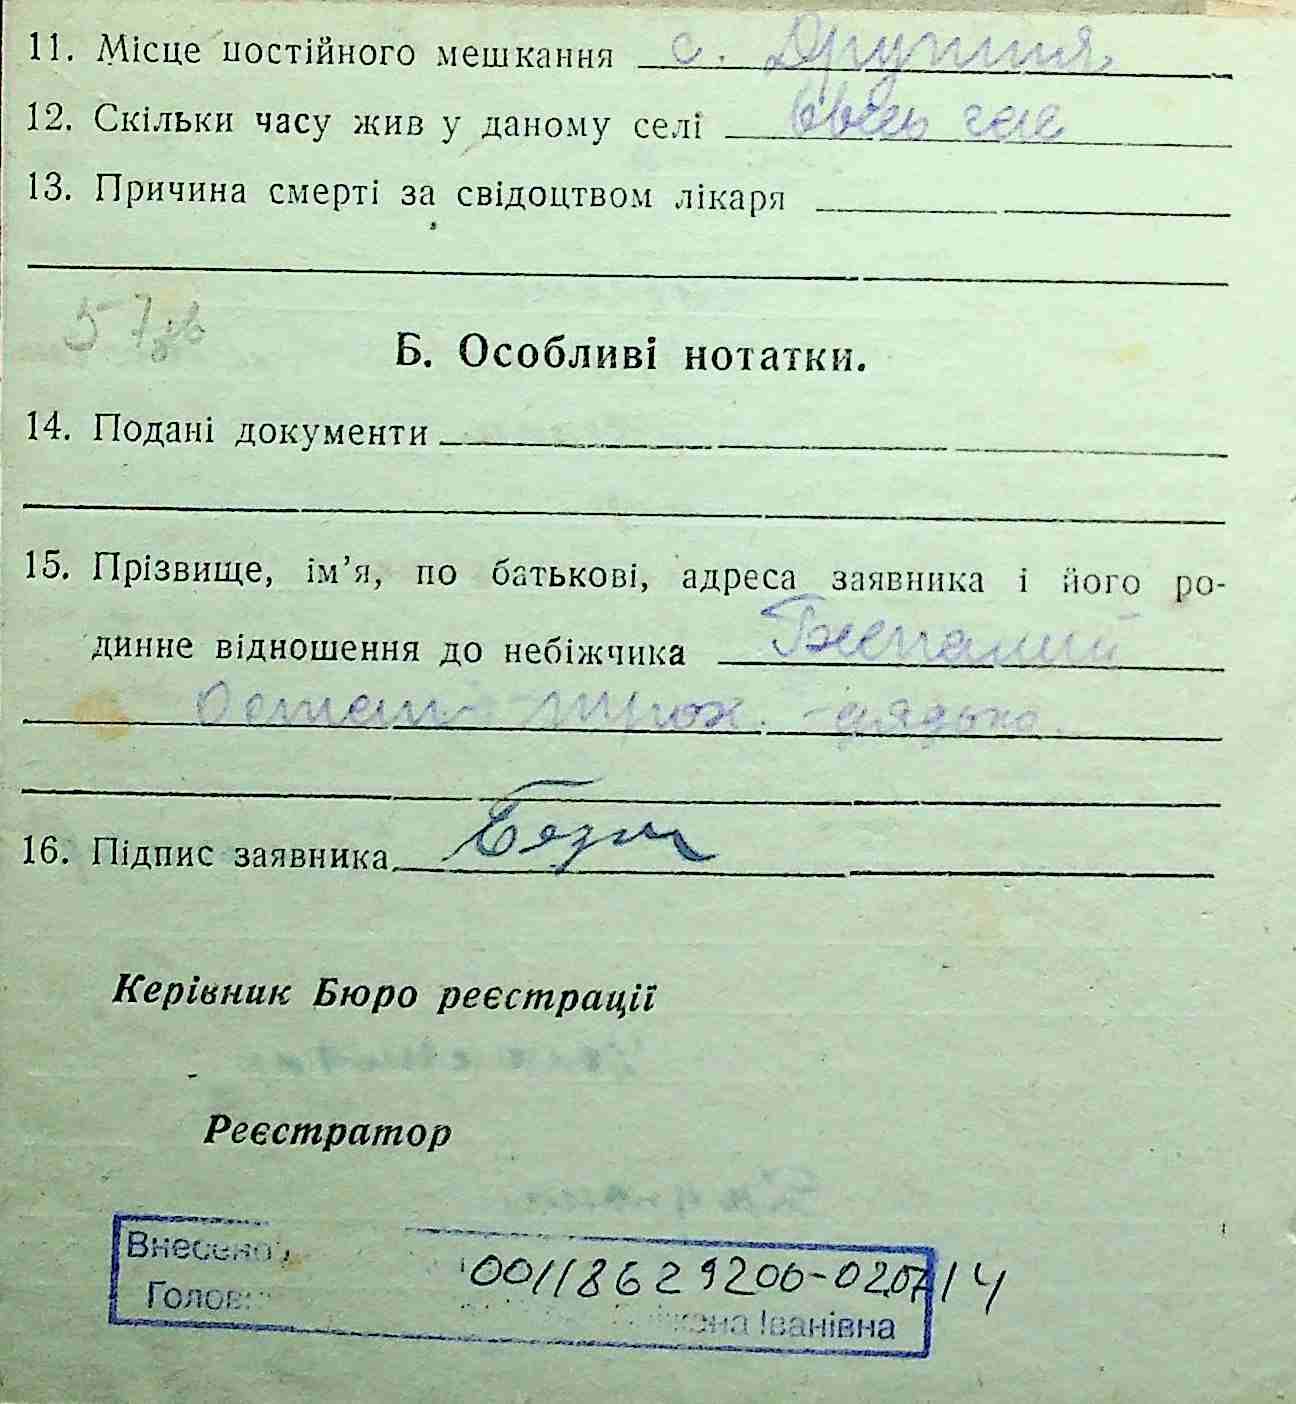 11. Місце постійного мешкання с.
12. Скільки часу жив у даному селі ввесь час
13. Причина смерті за свідоцтвом лікаря
57
Б. Особливі нотатки.
14. Подані документи
15. Прізвище, ім’я, по батькові, адреса заявника і його ро-
динне відношення до небіжчика
Остап дядько.
16. Підпис заявника
Керівник Бюро реєстрації
Реєстратор
Внесено 00118629200-02.07.14
Голов Іванівна